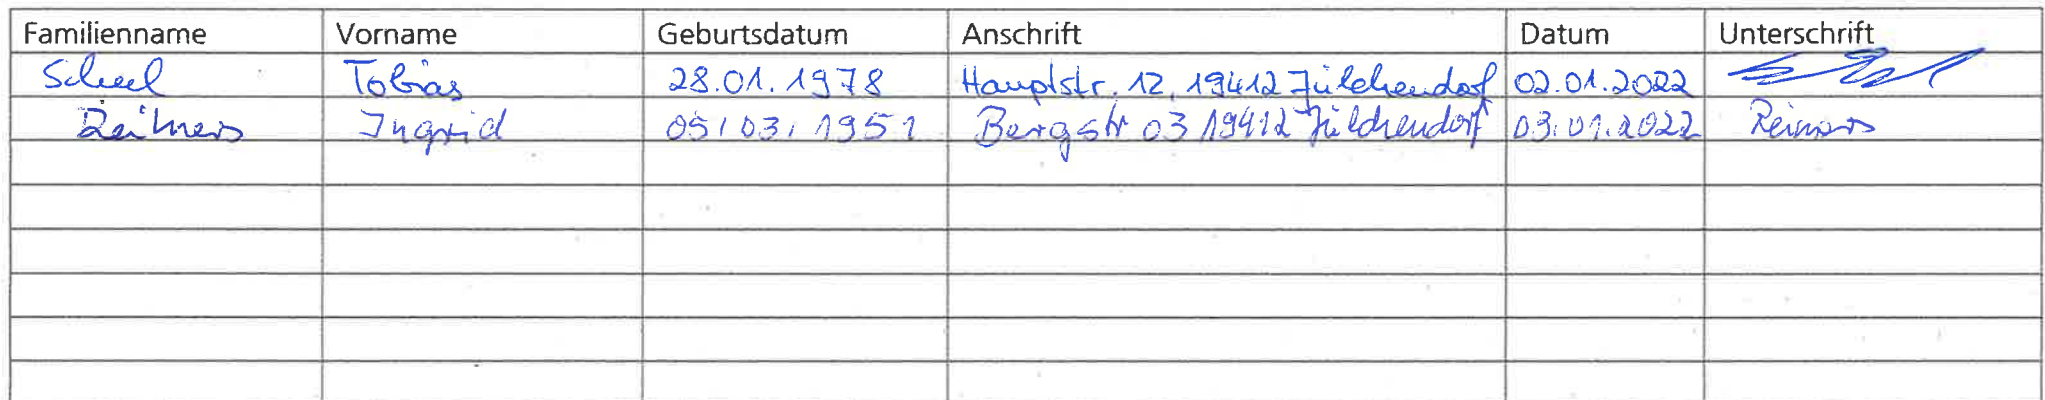 Familienname Vorname Geburtsdatum Anschrift Datum Unterschrift
Scheel Tobias 28.01.1978 Hauptstr. 12, 19412 Jülchendorf 02.01.2022
Reimers Ingrid 05.03.1951 Bergstr 03 19412 Jülchendorf 03.01.2022 Reimers